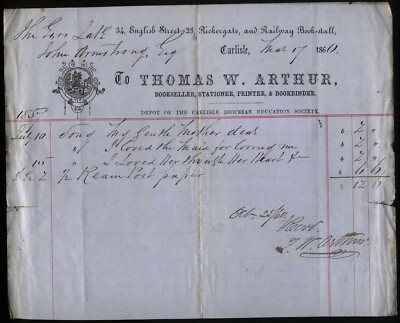 34, English Street, 28, Rickergate, and Railway Book-stall,
The Exrs Late
John Armstrong, Esq
Carlisle, Mar 17 1860.
To THOMAS W. ARTHUR,
BOOKSELLER, STATIONER, PRINTER, & BOOKBINDER.
DEPOT OF THE CARLISLE DIOCESAN EDUCATION SOCIETY.
10 Song My Gentle Mother dear " 2 "
" I loved the Maid for loving me " 2 "
15 " I loved Her thro' Her Heart &c " 2 "
7 ½ Ream Post paper " 6 "
" 12
Recd
T. W. Arthur